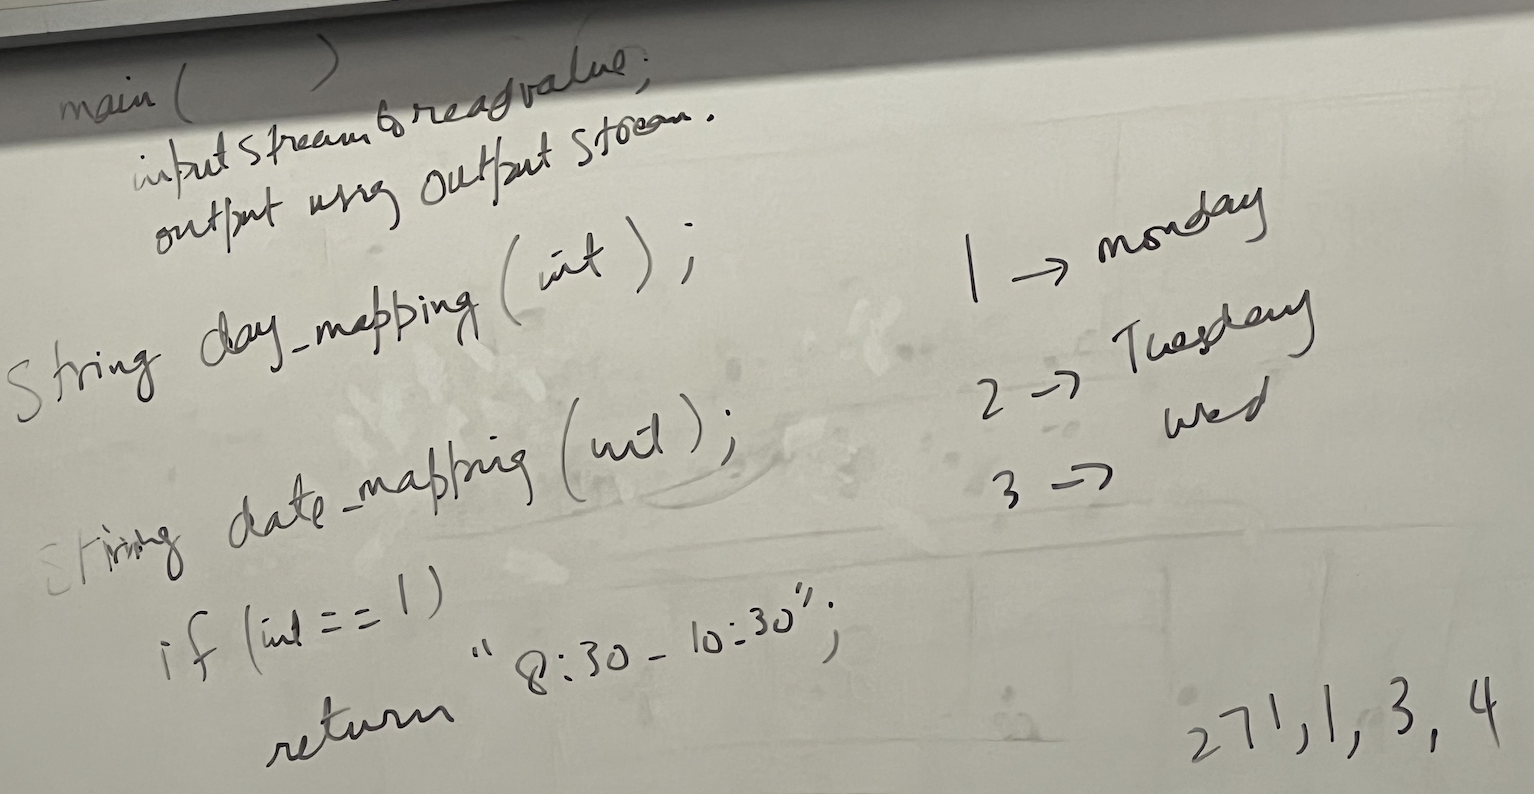 main (        )
input stream to read value;
output using output stream.
String day_mapping (int);
1 → monday
2 → Tuesday
3 → wed
String date_mapping (int);
if (int == 1)
return "8:30 - 10:30";
271, 1, 3, 4